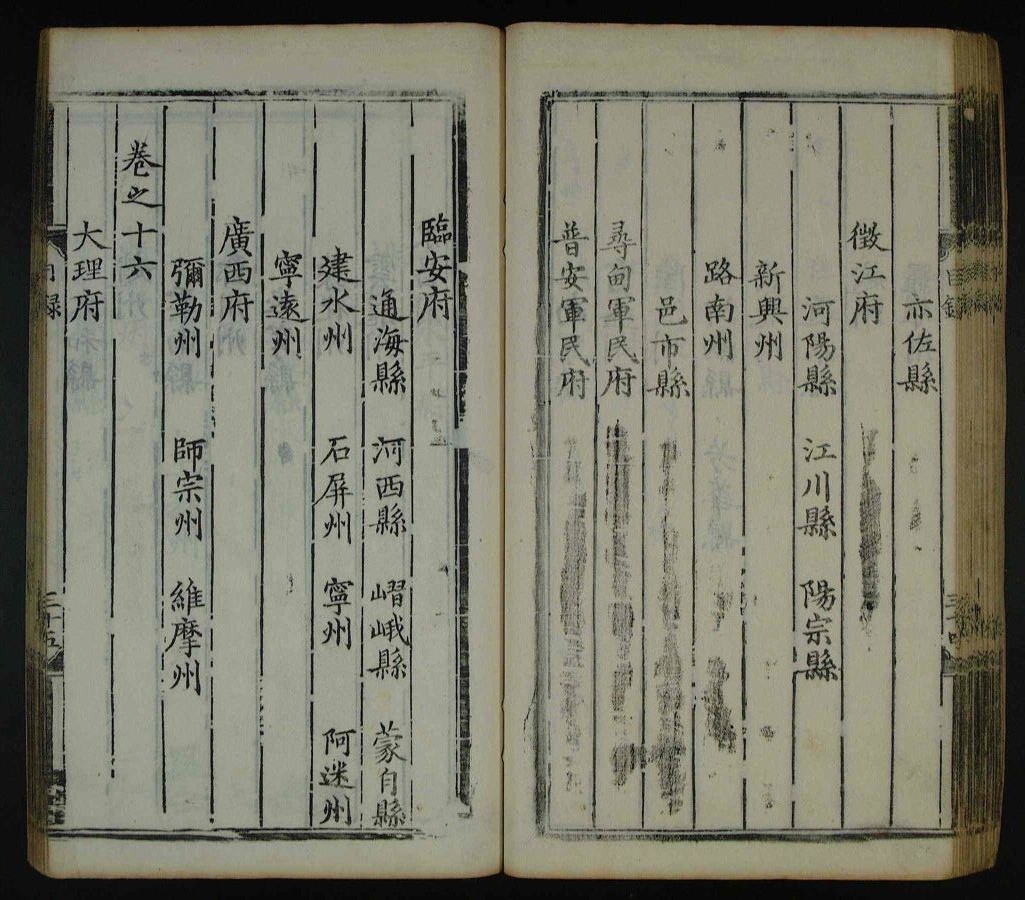 亦佐縣
徵江府
河陽縣 江川縣 陽宗縣
新興州
路南州
邑市縣
尋甸軍民府
普安軍民府
臨安府
通海縣 河西縣 嶍峨縣 蒙自縣
建水州 石屏州 寧州 阿迷州
寧遠州
廣西府
彌勒州 師宗州 維摩州
卷之十六
大理府
目録
二十五